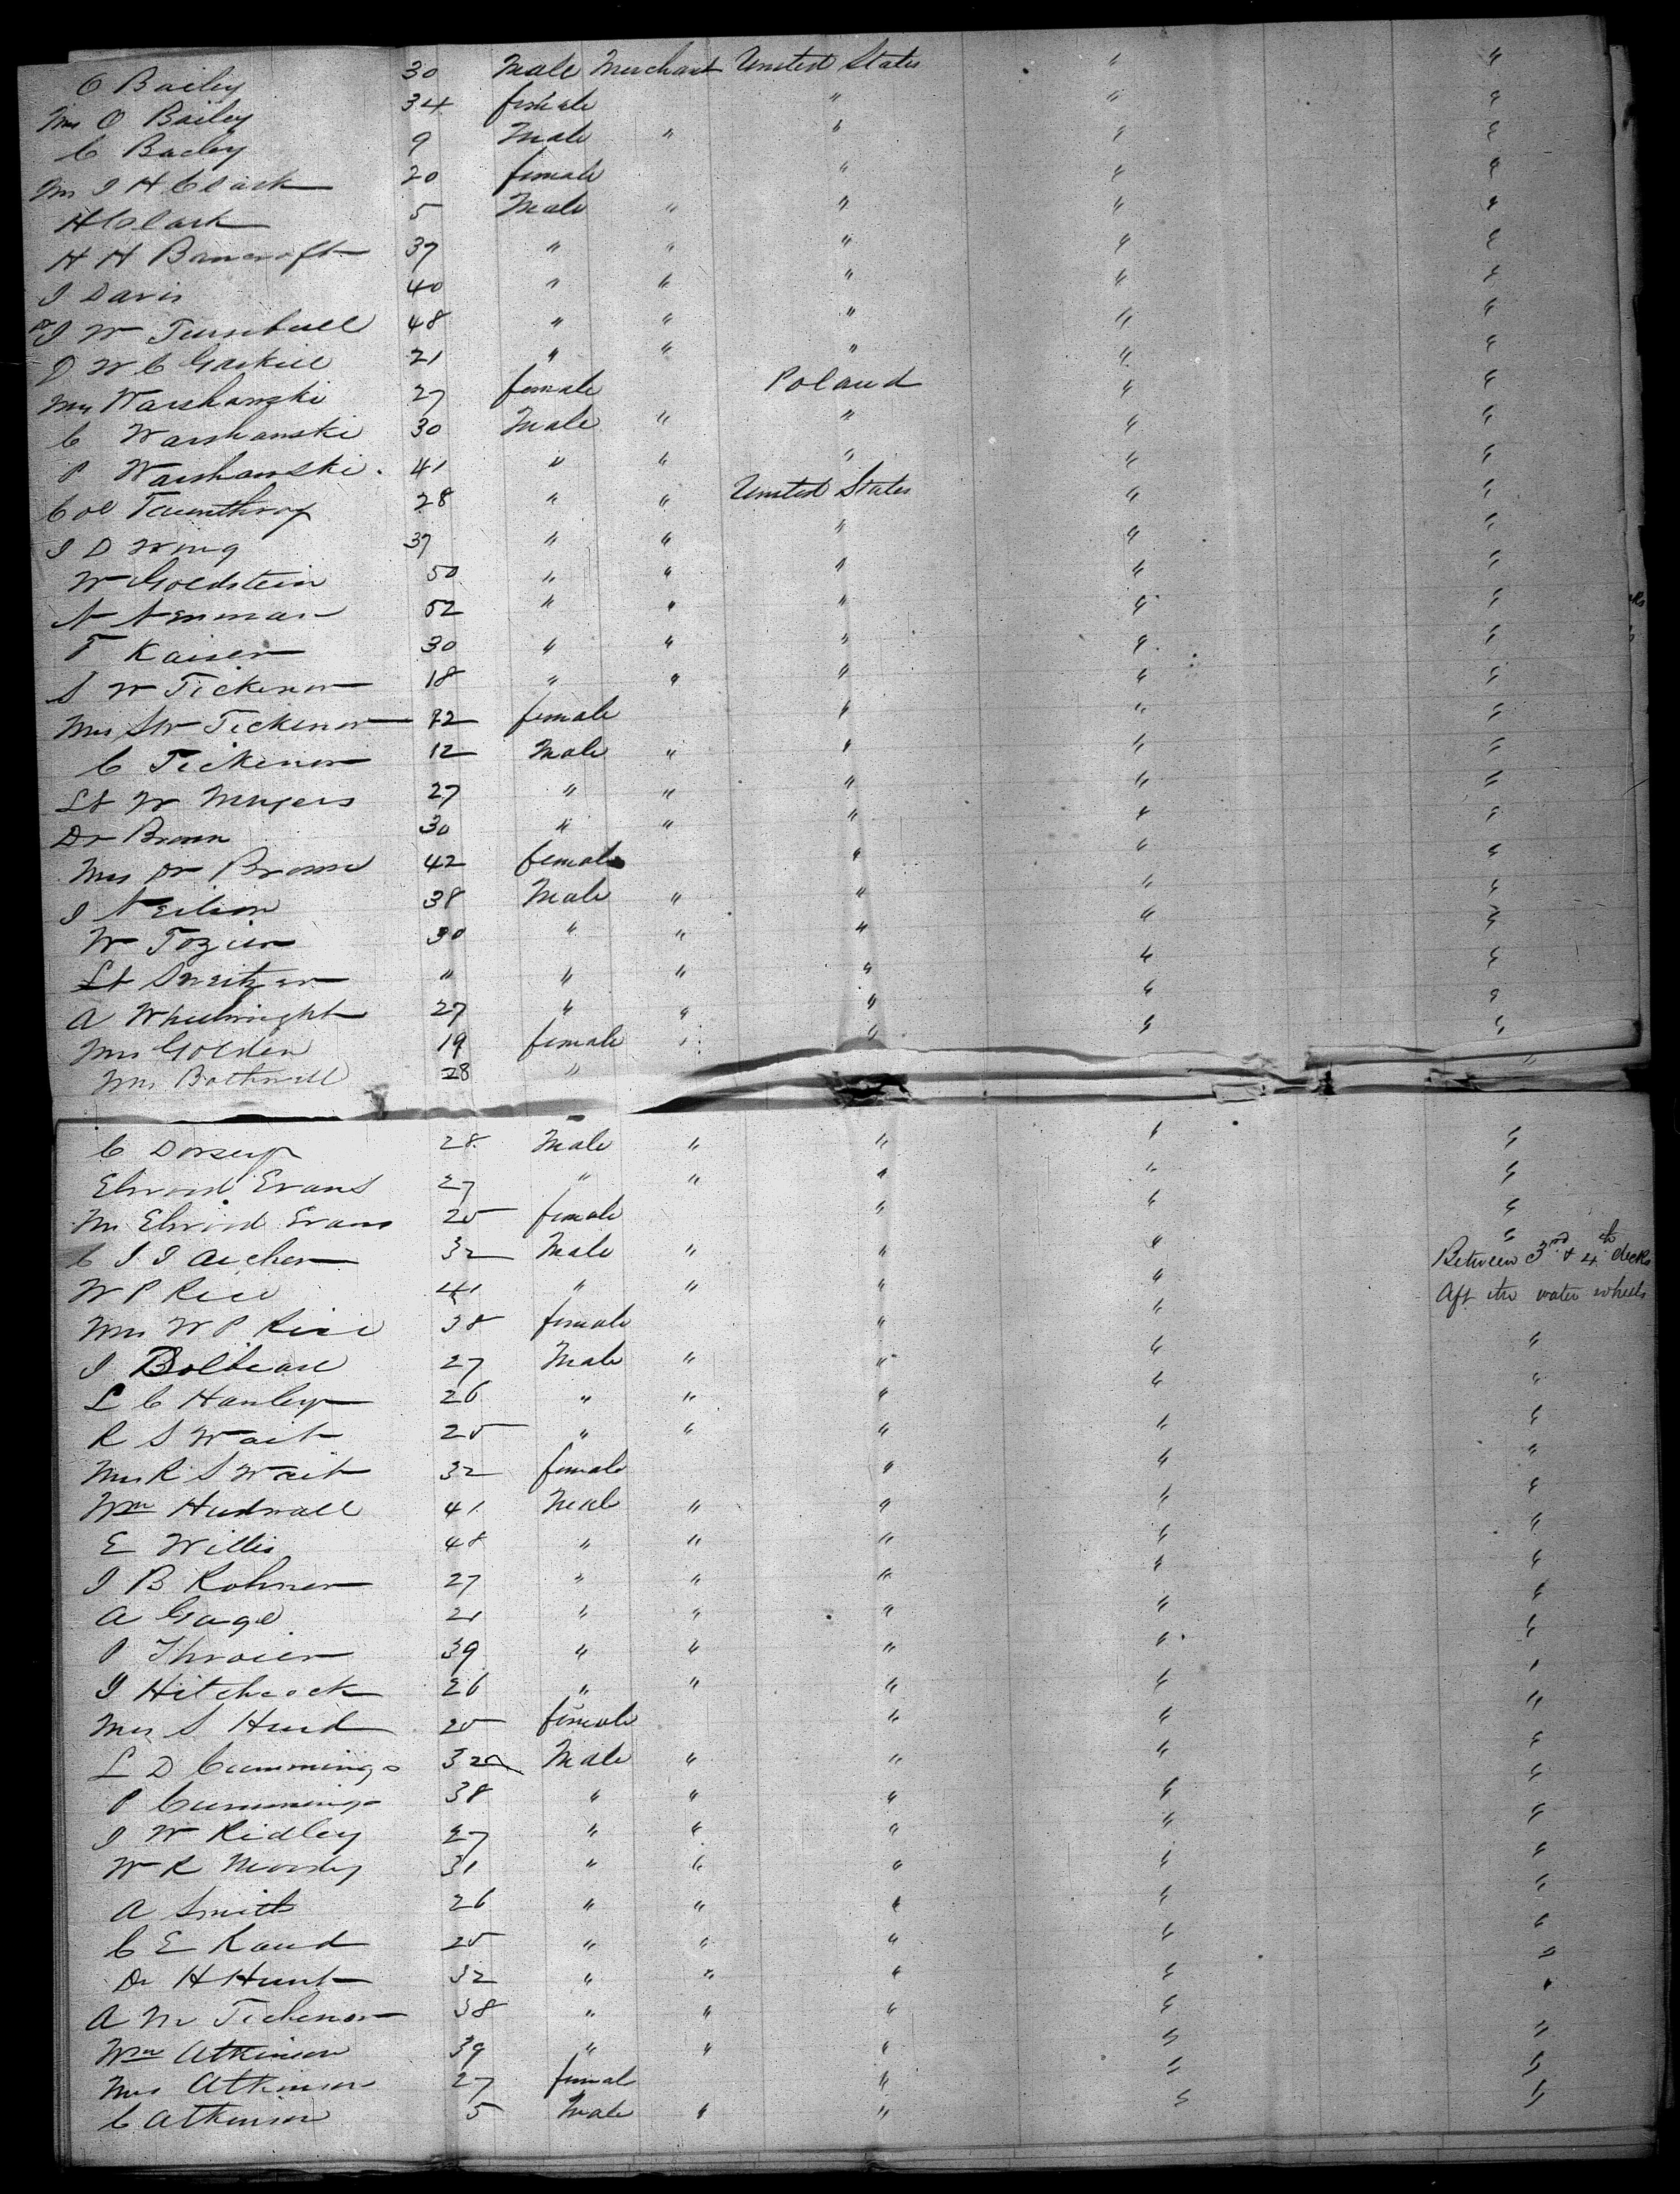 O Bailey 30 Male Merchant United States " "
Mrs O Bailey 34 female " " "
C Bailey 9 Male " " " "
Mrs J H Clark 20 female " " "
H Clark 5 Male " " " "
H H Bancroft 37 " " " " "
J Davis 40 " " " " "
J W Turnbull 48 " " " " "
D W C Gaskill 21 " " " " "
Mrs Warshawski 27 female Poland " "
C Warshanski 30 Male " " " "
P Warshawski 41 " " " " "
Col 28 " " United States " "
J D Wing 37 " " " " "
W Goldstein 50 " " " " "
N Newman 52 " " " " "
T Kaiser 30 " " " " "
S W Tickenor 18 " " " " "
Mrs S W Tickenor female " " "
C Tickenor 12 Male " " " "
Lt W Mugers 27 " " " " "
Dr Brown 30 " " " " "
Mrs Dr Brown 42 female " " "
J Neilson 38 Male " " " "
W Tozier 30 " " " " "
Lt Sweitzer " " " " " "
A Wheelwright 27 " " " " "
Mrs Golden 19 female " " " "
Mrs Bothwell 28 " "
C Dorsey 28 Male " " " "
Elwood Evans 27 " " " " "
Mrs Elwood Evans 25 female " " "
C J J Archer 32 Male " " " "
Between 3rd & 4th decks
W P Rice 41 " " " " Aft the water wheels
Mrs W P Rice 38 female " "
J Bolbear 27 Male " " " "
L C Hanley 26 " " " " "
R S Wait 25 " " " " "
Mrs R S Wait 32 female " " "
Wm Hudnall 41 Male " " " "
E Willis 48 " " " " "
J B Rohner 27 " " " " "
A Gage 21 " " " " "
P Throier 39 " " " " "
J Hitchcock 26 " " " " "
Mrs S Hurd 25 female " " "
L D Cummings 32 Male " " " "
P Cummings 38 " " " " "
J W Ridley 27 " " " " "
W R Moody 31 " " " " "
A Smith 26 " " " " "
C E Rand 25 " " " " "
Dr H Hunt 32 " " " " "
A M Tichenor 38 " " " " "
Wm Atkinson 39 " " " " "
Mrs Atkinson 27 female " " "
C Atkinson 5 Male " " " "